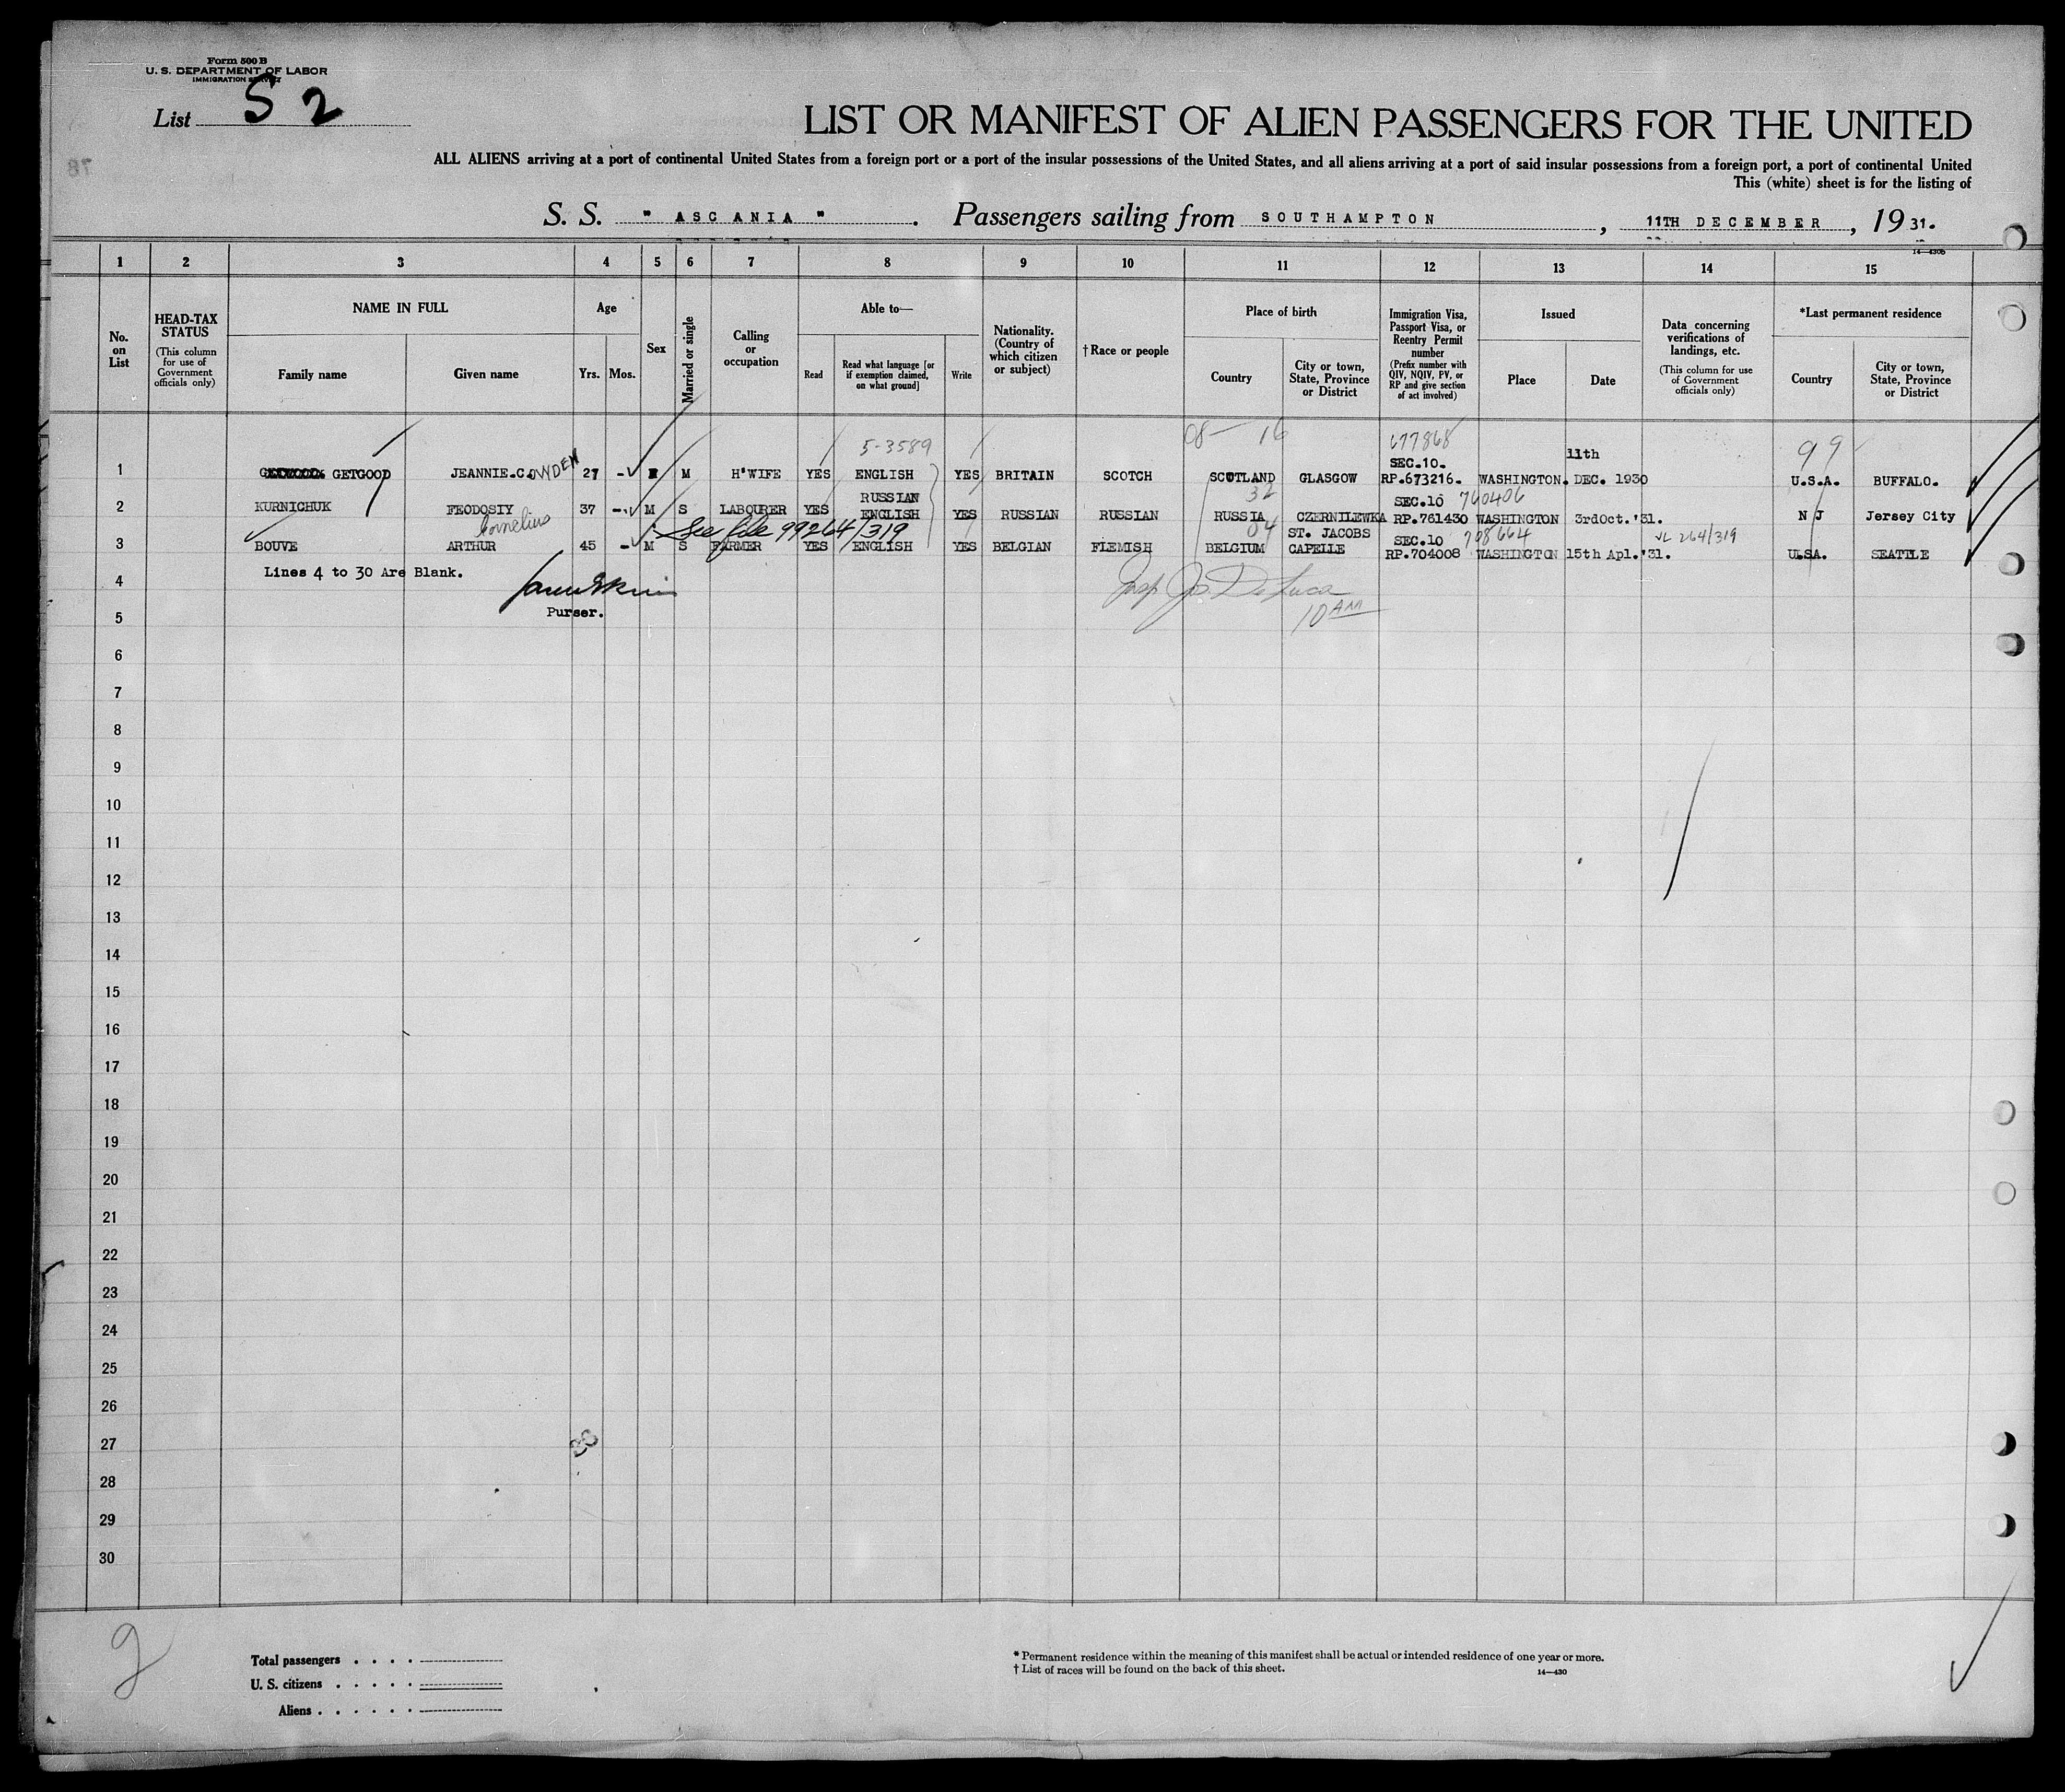 Form 500 B
U. S. DEPARTMENT OF LABOR
IMMIGRATION SERVICE
List S 2
LIST OR MANIFEST OF ALIEN PASSENGERS FOR THE UNITED
ALL ALIENS arriving at a port of continental United States from a foreign port or a port of the insular possessions of the United States, and all aliens arriving at a port of said insular possessions from a foreign port, a port of continental United
This (white) sheet is for the listing of
S. S. " ASCANIA " . Passengers sailing from SOUTHAMPTON , 11TH DECEMBER , 19 31.
14—430B
1 2 3 4 5 6 7 8 9 10 11 12 13 14 15
No. on List
HEAD-TAX STATUS
(This column for use of Government officials only)
NAME IN FULL
Family name Given name
Age
Yrs. Mos.
Sex
Married or single
Calling or occupation
Able to—
Read Read what language [or if exemption claimed, on what ground] Write
Nationality. (Country of which citizen or subject)
†Race or people
Place of birth
Country City or town, State, Province or District
Immigration Visa, Passport Visa, or Reentry Permit number
(Prefix number with QIV, NQIV, PV, or RP and give section of act involved)
Issued
Place Date
Data concerning verifications of landings, etc.
(This column for use of Government officials only)
*Last permanent residence
Country City or town, State, Province or District
08— 16 677868
5-3589 SEC.10. 11th 99
1 GETGOOD JEANNIE.COWDEN 27 - F M H'WIFE YES ENGLISH YES BRITAIN SCOTCH SCOTLAND GLASGOW RP.673216. WASHINGTON. DEC. 1930 U.S.A. BUFFALO.
RUSSIAN 32 SEC.10 760406
2 KURNICHUK FEODOSIY 37 - M S LABOURER YES ENGLISH YES RUSSIAN RUSSIAN RUSSIA CZERNILEWKA RP.761430 WASHINGTON 3rdOct.'31. N J Jersey City
Cornelius See file 99264/319 04 ST. JACOBS SEC.10 708664 VL 264/319
3 BOUVE ARTHUR 45 - M S FARMER YES ENGLISH YES BELGIAN FLEMISH BELGIUM CAPELLE RP.704008 WASHINGTON 15th Apl.'31. U.S.A. SEATTLE
Lines 4 to 30 Are Blank.
4 Insp Jos De Luca
Purser. 10 AM
5
6
7
8
9
10
11
12
13
14
15
16
17
18
19
20
21
22
23
24
25
26
27
28
29
30
2
Total passengers . . . .
U. S. citizens . . . . .
Aliens . . . . . .
* Permanent residence within the meaning of this manifest shall be actual or intended residence of one year or more.
† List of races will be found on the back of this sheet. 14—430